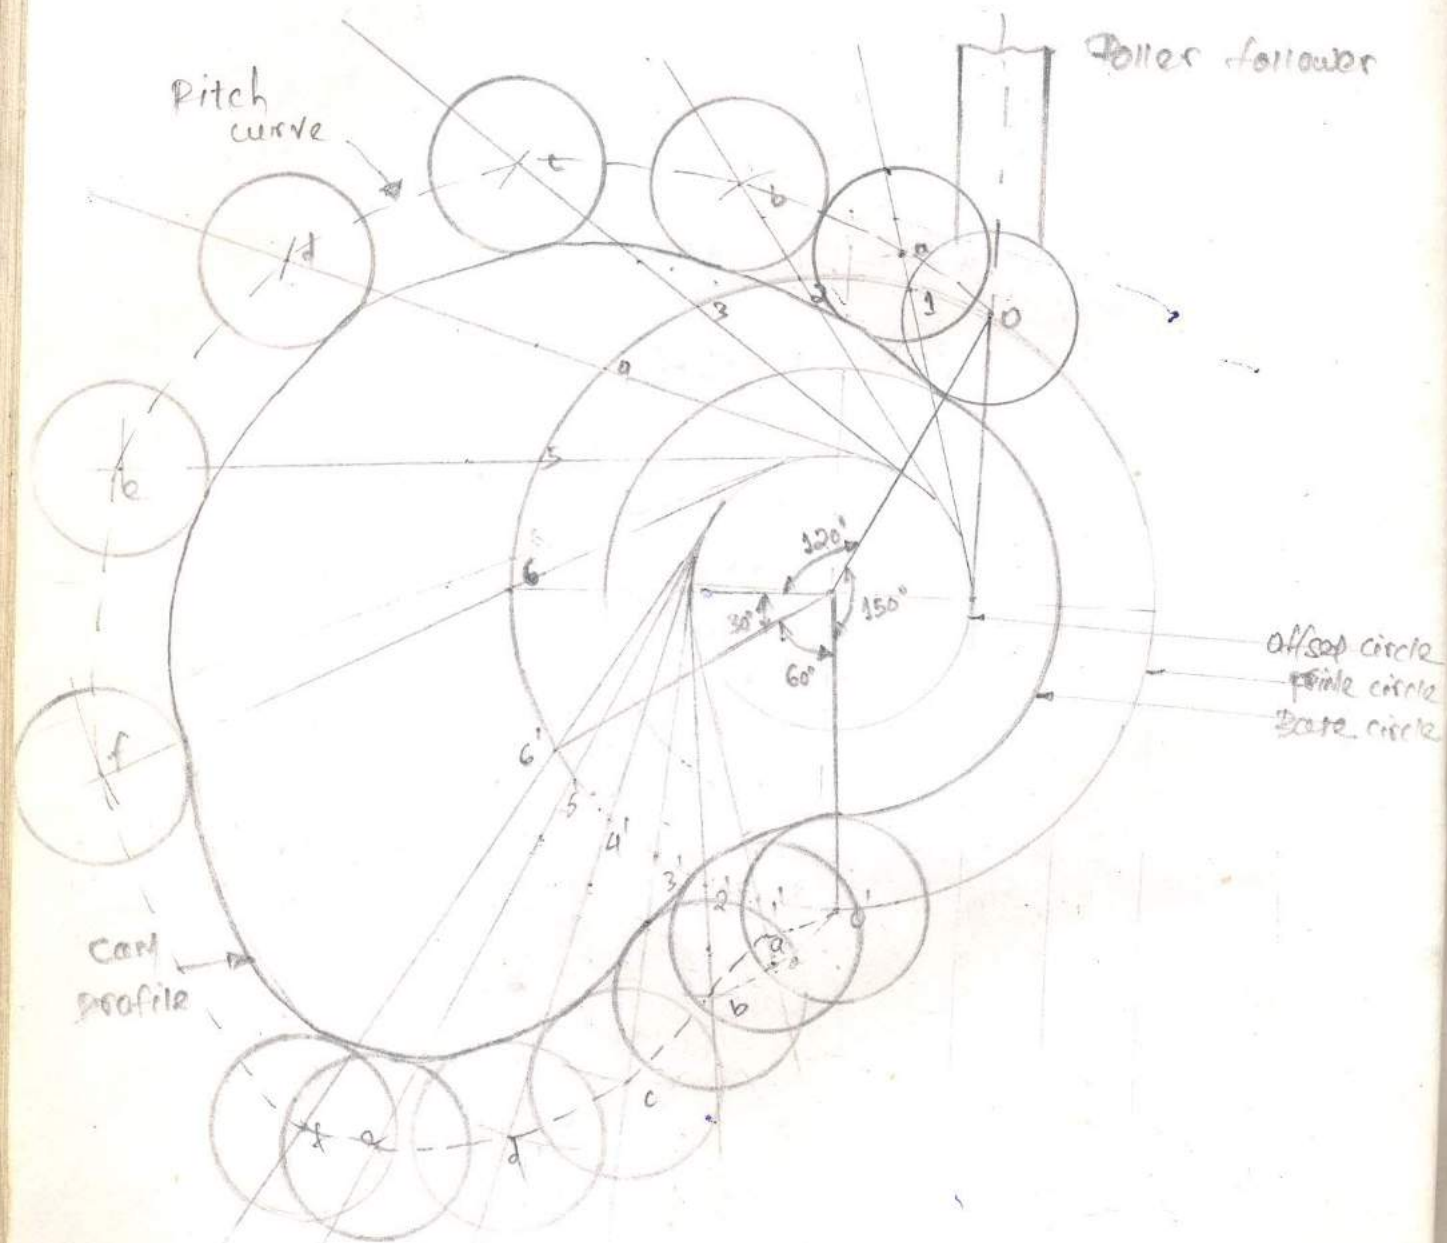 Roller follower
Pitch
curve
c
b
d
a
0
1
2
3
a
5
e
6
120°
150°
30°
60°
offset circle
prime circle
Base circle
f
6'
5'
4'
3'
2'
1'
0'
a
b
c
d
e
f
Cam
profile